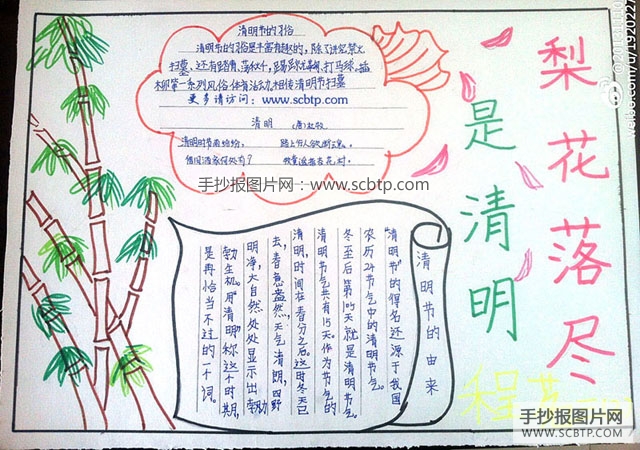 梨花落尽
是清明
清明节的习俗
清明节的习俗是丰富有趣的，除了讲究禁火
扫墓，还有踏青、荡秋千、踢蹴鞠、打马球、插
柳等一系列风俗体育活动。相传清明节扫墓
更多请访问：www.scbtp.com
清明 (唐)杜牧
清明时节雨纷纷， 路上行人欲断魂。
借问酒家何处有？ 牧童遥指杏花村。
手抄报图片网：www.scbtp.com
清明节的由来
"清明节"的得名还源于我国
农历24节气中的清明节气。
冬至后第105天就是清明节气。
清明节气共有15天。作为节气的
清明，时间在春分之后。这时冬天已
去，春意盎然，天气清朗，四野
明净，大自然处处显示出勃勃
勃生机。用"清明"称这个时期，
是再恰当不过的一个词。
手抄报图片网
WWW.SCBTP.COM